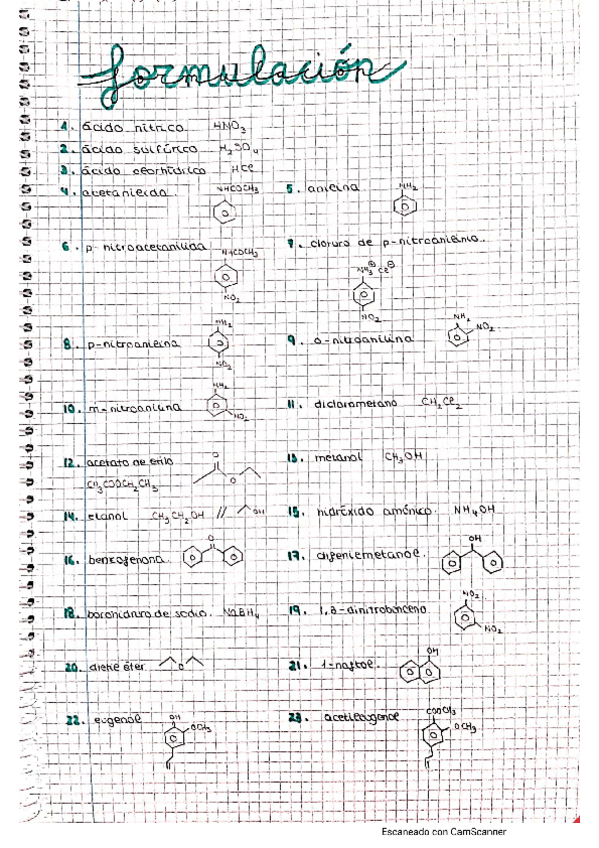 formulación
1. ácido nítrico HNO₃
2. ácido sulfúrico H₂SO₄
3. ácido clorhídrico HCl
4. acetanilida NHCOCH₃
5. anilina NH₂
6. p-nitroacetanilida NHCOCH₃ NO₂
7. cloruro de p-nitroanilinio. NH₃⊕ Cl⊖ NO₂
8. p-nitroanilina NH₂ NO₂
9. o-nitroanilina NH₂ NO₂
10. m-nitroanilina NH₂ NO₂
11. diclorometano CH₂Cl₂
12. acetato de etilo O O
CH₃COOCH₂CH₃
13. metanol CH₃OH
14. etanol CH₃CH₂OH // OH
15. hidróxido amónico. NH₄OH
16. benzofenona O
17. difenilmetanol. OH
18. borohidruro de sodio. NaBH₄
19. 1,3-dinitrobenceno NO₂ NO₂
20. dietil éter O
21. 1-naftol. OH
22. eugenol OH OCH₃
23. acetileugenol COOCH₃ OCH₃
Escaneado con CamScanner